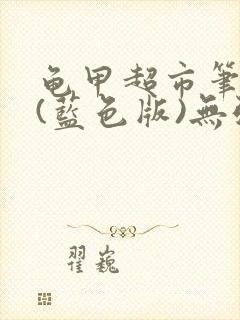 龟甲超市筆
(藍色版)無
翟巍